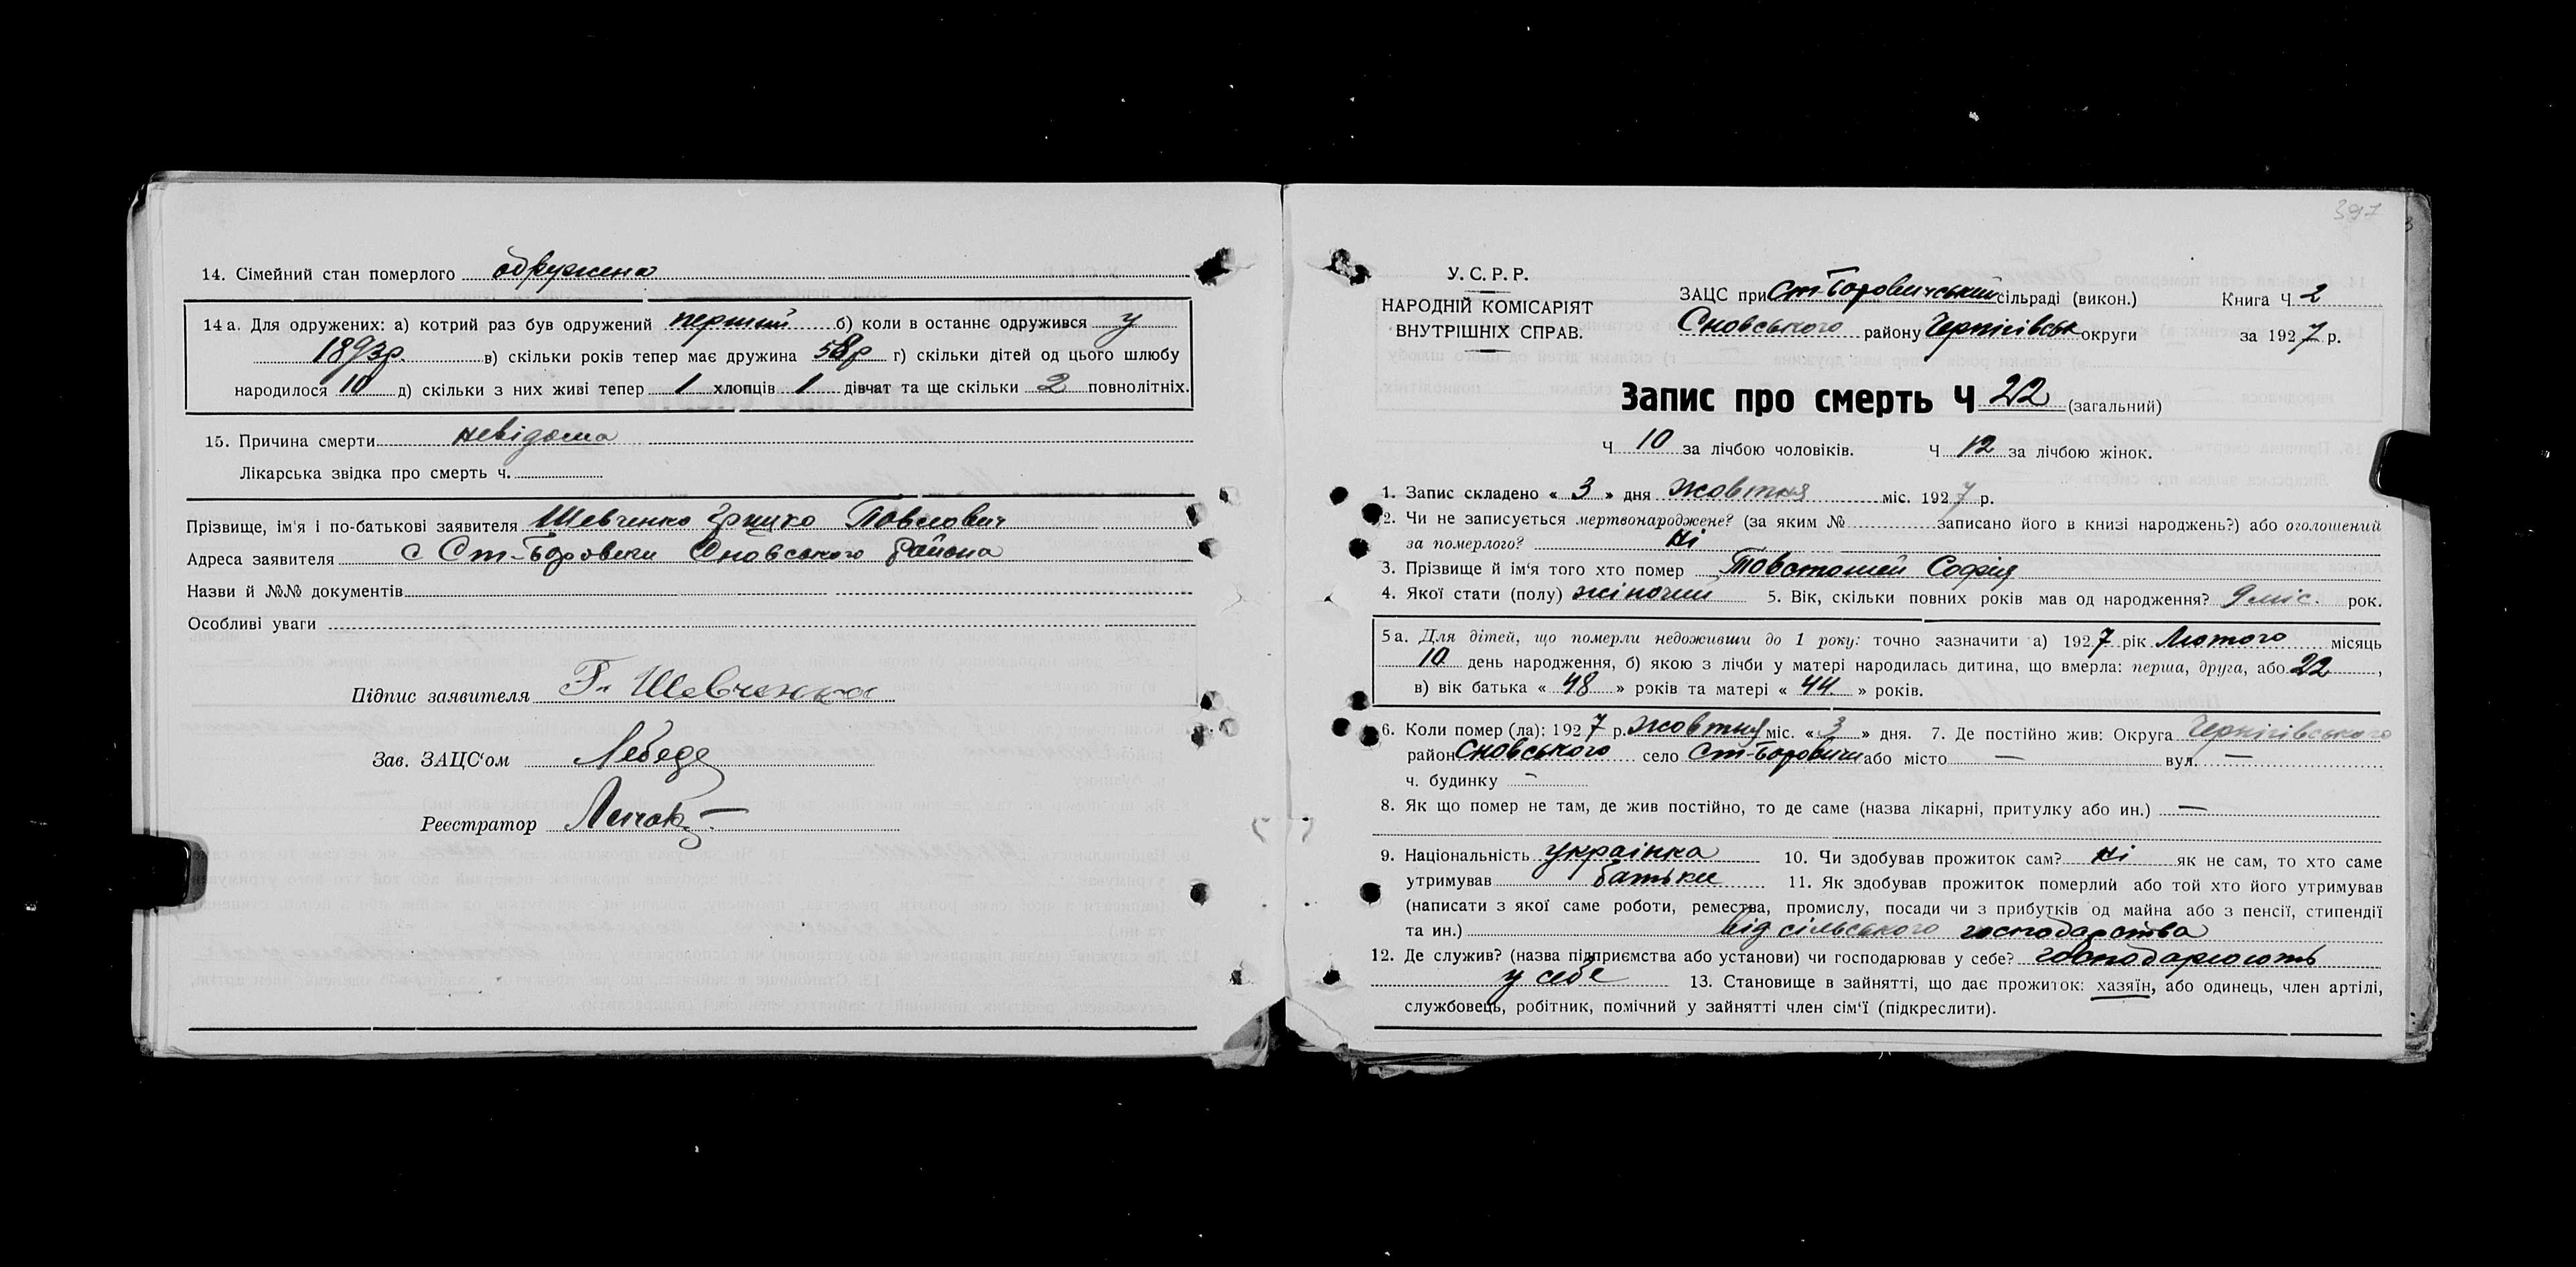 14. Сімейний стан померлого одружена
14 а. Для одружених: а) котрий раз був одружений перший б) коли в останнє одружився у
1893р. в) скільки років тепер має дружина 58р г) скільки дітей од цього шлюбу
народилося 10 д) скільки з них живі тепер 1 хлопців 1 дівчат та ще скільки 2 повнолітніх.
15. Причина смерти невідома
Лікарська звідка про смерть ч.
Прізвище, ім'я і по-батькові заявителя Шевченко Грицко Павлович
Адреса заявителя с Ст-Боровичи Сновського района
Назви й №№ документів
Особливі уваги
Підпис заявителя Г. Шевченко
Зав. ЗАЦС'ом
Реєстратор
397
У. С. Р. Р.
НАРОДНІЙ КОМІСАРІЯТ
ВНУТРІШНІХ СПРАВ.
ЗАЦС при Ст-Боровичський сільраді (викон.) Книга Ч 2
Сновського району Чернігівськ округи за 1927 р.
Запис про смерть Ч 22 (загальний)
Ч 10 за лічбою чоловіків. Ч 12 за лічбою жінок.
1. Запис складено « 3 » дня жовтня міс. 1927 р.
2. Чи не записується мертвонароджене? (за яким № записано його в книзі народжень?) або оголошений
за померлого? Ні
3. Прізвище й ім'я того хто помер Товстошей Софія
4. Якої стати (полу) жіночий 5. Вік, скільки повних років мав од народження? 9 міс. рок.
5 а. Для дітей, що померли недоживши до 1 року: точно зазначити а) 1927 рік Лютого місяць
10 день народження, б) якою з лічби у матері народилась дитина, що вмерла: перша, друга, або 22,
в) вік батька « 48 » років та матері « 44 » років.
6. Коли помер (ла): 1927 р. жовтня міс. « 3 » дня. 7. Де постійно жив: Округа Чернігівського
район Сновського село Ст-Боровичи або місто — вул. —
ч. будинку —
8. Як що помер не там, де жив постійно, то де саме (назва лікарні, притулку або ин.) —
9. Національність українка 10. Чи здобував прожиток сам? Ні як не сам, то хто саме
утримував батьки 11. Як здобував прожиток померлий або той хто його утримував
(написати з якої саме роботи, ремества, промислу, посади чи з прибутків од майна або з пенсії, стипендії
та ин.) від сільського господарства
12. Де служив? (назва підприємства або установи) чи господарював у себе? господарюють
у себе 13. Становище в зайнятті, що дає прожиток: хазяїн, або одинець, член артілі,
службовець, робітник, помічний у зайнятті член сім'ї (підкреслити).